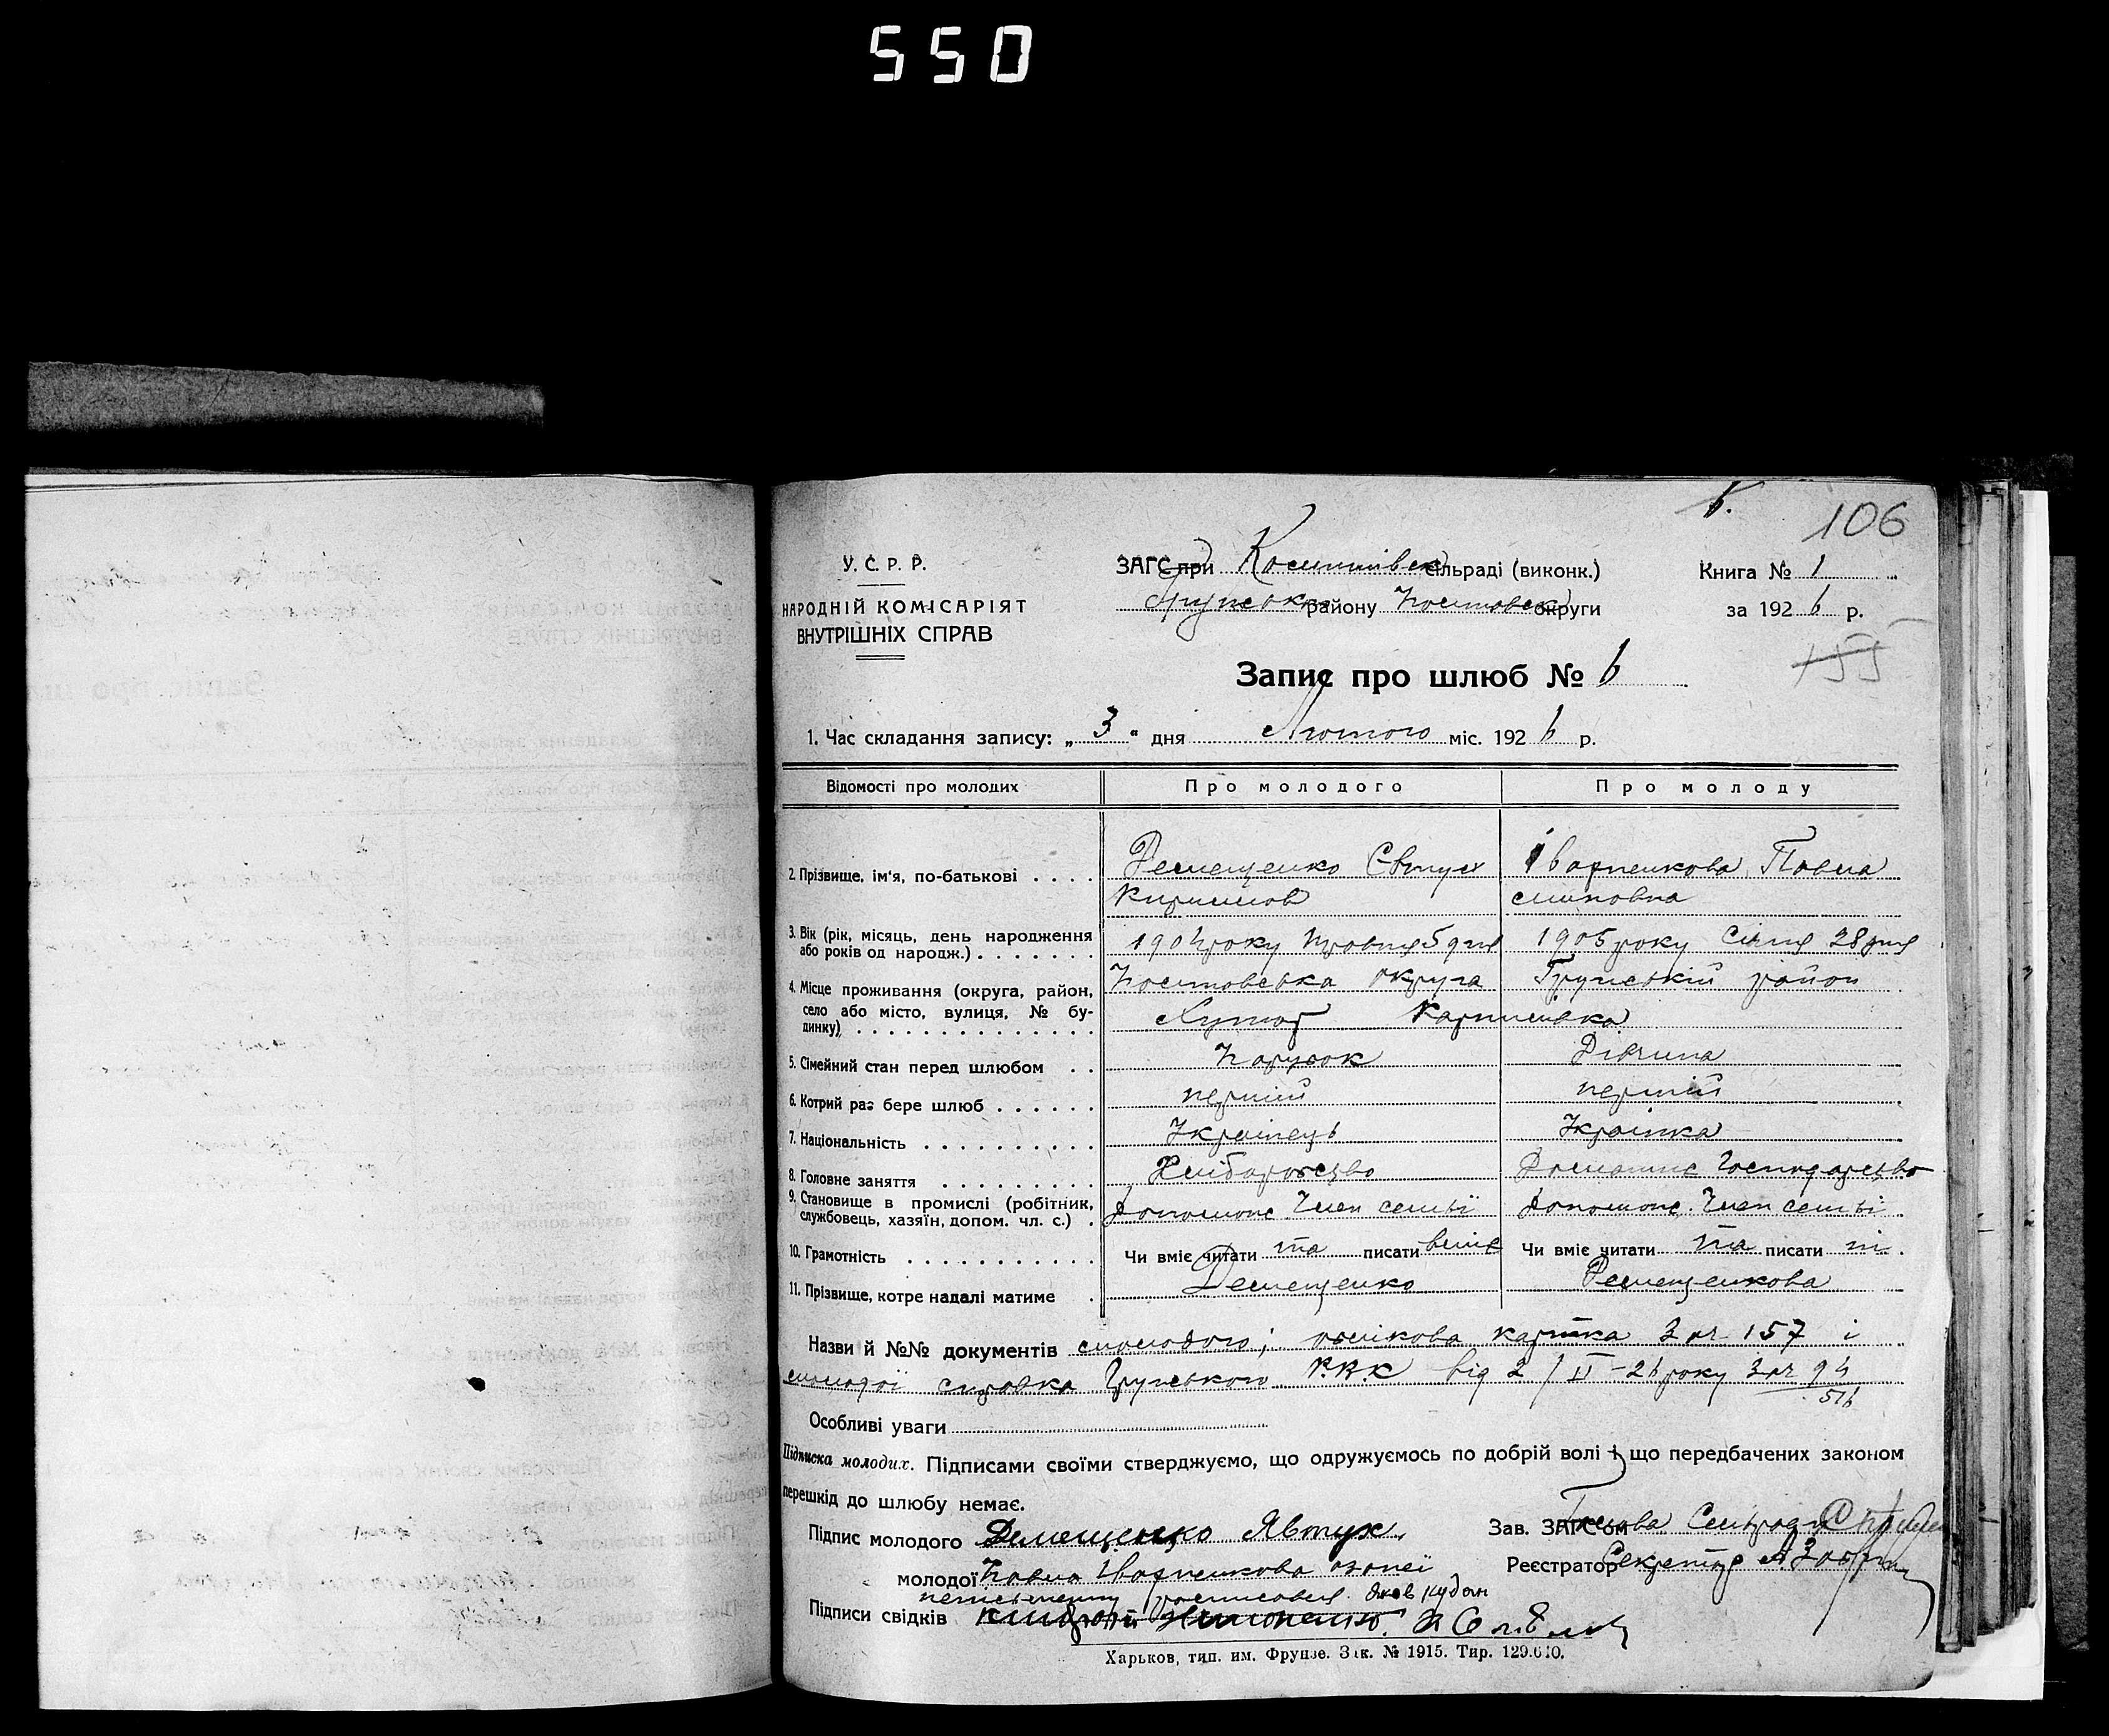 550
106
У. С. Р. Р.
НАРОДНІЙ КОМІСАРІЯТ
ВНУТРІШНІХ СПРАВ
ЗАГС при сільраді (виконк.)
району округи
Книга № 1
за 1926 р.
155
Запис про шлюб № 6
1. Час складання запису: „ 3 " дня Лютого міс. 1926 р.
Відомості про молодих Про молодого Про молоду
2. Прізвище, ім'я, по-батькові . . . . Демещенко Євтух Павла
3. Вік (рік, місяць, день народження 1904 року 5 дня 1905 року Січня 28 дня
або років од народж.) . . . . . . .
4. Місце проживання (округа, район, округа Грунській район
село або місто, вулиця, № бу-
динку) . . . . . . . . . . . . . . . Хутор
5. Сімейний стан перед шлюбом . . Парубок Дівчина
6. Котрий раз бере шлюб . . . . . . перший перший
7. Національність . . . . . . . . . . Українець Українка
8. Головне заняття . . . . . . . . . Хліборобство Домашнє Господарство
9. Становище в промислі (робітник,
службовець, хазяїн, допом. чл. с.) . Допомож. Член семьї Допомож. Член семьї
10. Грамотність . . . . . . . . . . . Чи вміє читати та писати вміє Чи вміє читати та писати ні.
11. Прізвище, котре надалі матиме . Демещенко Демещенкова
Назви й №№ документів смолодого; облікова картка за № 157 і
смолодої справка Грунського Р.В.К від 2/II-26 року за № 94
516
Особливі уваги
Підписка молодих. Підписами своїми стверджуємо, що одружуємось по добрій волі і що передбачених законом
перешкід до шлюбу немає.
Підпис молодого Демещенко Явтух.
Зав. ЗАГС'ом Голова Сельради
молодої Павла Іварненкова
Реєстратор Секретар
неписьменну росписався Яков
Підписи свідків
Харьков, тип. им. Фрунзе. Зак. № 1915. Тир. 129.000.